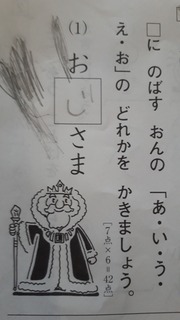 □に のばす おんの 「あ・い・う・
え・お」の どれかを かきましょう。
[7点×6=42点]
(1) お じ さま